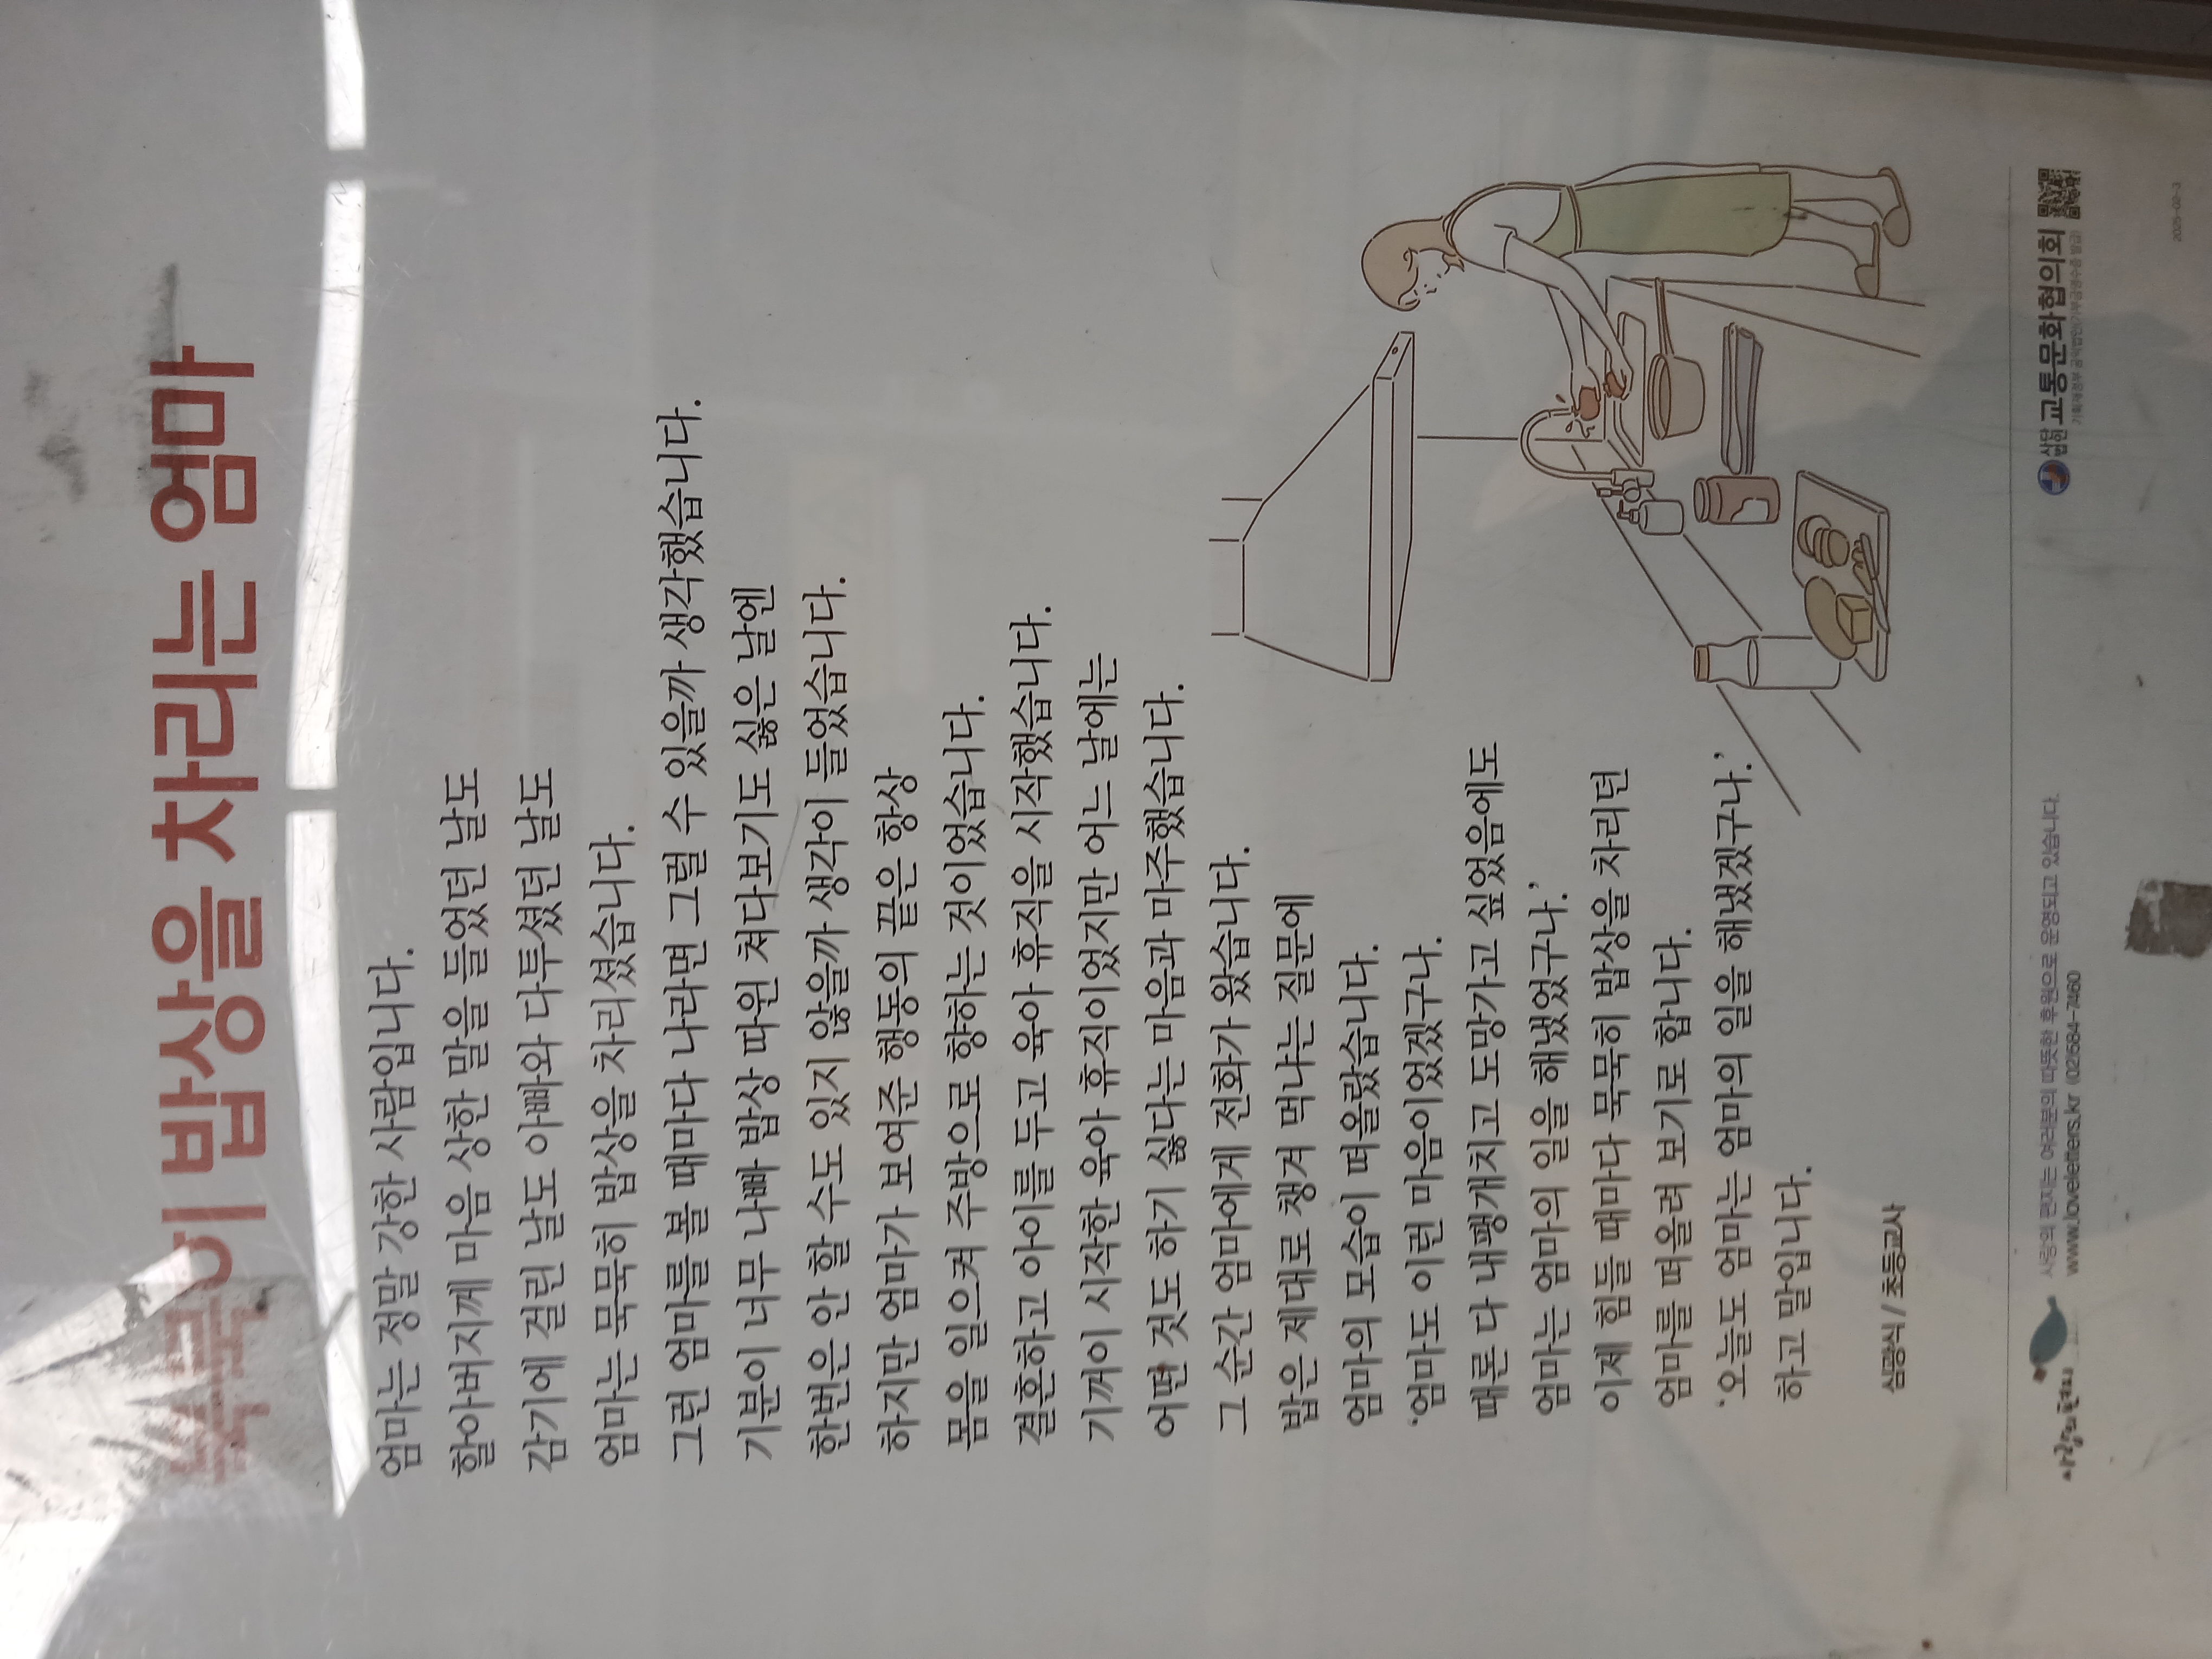 묵묵히 밥상을 차리는 엄마
엄마는 정말 강한 사람입니다.
할아버지께 마음 상한 말을 들었던 날도
감기에 걸린 날도 아빠와 다투셨던 날도
엄마는 묵묵히 밥상을 차리셨습니다.
그런 엄마를 볼 때마다 나라면 그럴 수 있을까 생각했습니다.
기분이 너무 나빠 밥상 따윈 쳐다보기도 싫은 날엔
한번은 안 할 수도 있지 않을까 생각이 들었습니다.
하지만 엄마가 보여준 행동의 끝은 항상
몸을 일으켜 주방으로 향하는 것이었습니다.
결혼하고 아이를 두고 육아 휴직을 시작했습니다.
기꺼이 시작한 육아 휴직이었지만 어느 날에는
어떤 것도 하기 싫다는 마음과 마주했습니다.
그 순간 엄마에게 전화가 왔습니다.
밥은 제대로 챙겨 먹냐는 질문에
엄마의 모습이 떠올랐습니다.
‘엄마도 이런 마음이었겠구나.
때론 다 내팽개치고 도망가고 싶었음에도
엄마는 엄마의 일을 해냈었구나.’
이제 힘들 때마다 묵묵히 밥상을 차리던
엄마를 떠올려 보기로 합니다.
‘오늘도 엄마는 엄마의 일을 해냈겠구나.’
하고 말입니다.
심광식 / 초등교사
사랑의 편지
사랑의 편지는 여러분의 따뜻한 후원으로 운영되고 있습니다.
www.loveletters.kr (02)584-7460
교통문화협의회
2025-02-3